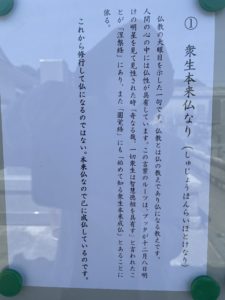 ① 衆生本来仏なり(しゅじょうほんらいほとけなり)
仏教の大眼目を示した一句です。仏教とは仏の教えであり仏になる教えです。
人間の心の中には仏性が具有しています。この言葉のルーツは、ブッダが十二月八日明
けの明星を見て見性された時「奇なる哉、一切衆生は智慧徳相を具有す」と言われたこ
とが『涅槃経』にあり、また『圓覚経』にも「始めて知る衆生本来成仏」とあることに
依る。
これから修行して仏になるのではない、本来仏なので已に成仏しているのです。